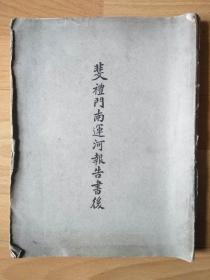 斐禮門南運河報告書後